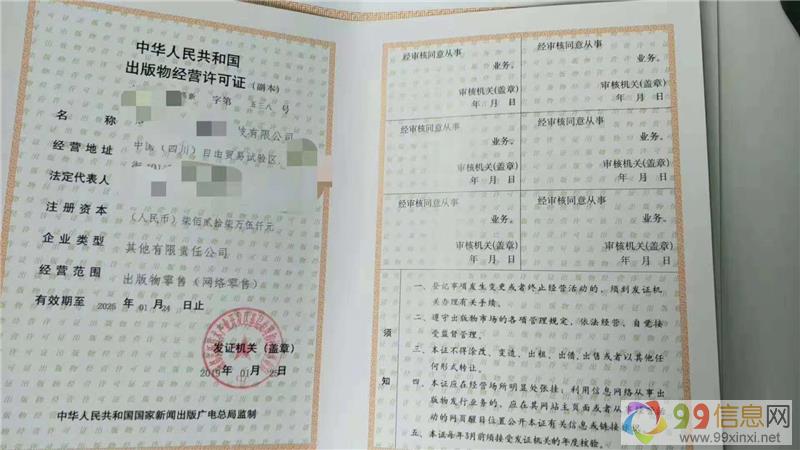 中华人民共和国
出版物经营许可证（副本）
新 字第 五三八 号
名 称 发有限公司
经营地址 中国（四川）自由贸易试验区
法定代表人
注册资本 （人民币）柒佰贰拾柒万伍仟元
企业类型 其他有限责任公司
经营范围 出版物零售（网络零售）
有效期至 2025 年 01 月 24 日止
发证机关（盖章）
2019 年 01 月 25 日
中华人民共和国国家新闻出版广电总局监制
经审核同意从事
业务。
审核机关(盖章)
年 月 日
经审核同意从事
业务。
审核机关(盖章)
年 月 日
经审核同意从事
业务。
审核机关(盖章)
年 月 日
经审核同意从事
业务。
审核机关(盖章)
年 月 日
经审核同意从事
业务。
审核机关(盖章)
年 月 日
经审核同意从事
业务。
审核机关(盖章)
年 月 日
须知
一、登记事项发生变更或者终止经营活动的，须到发证机
关办理有关手续。
二、遵守出版物市场的各项管理规定，依法经营、自觉接
受监督管理。
三、本证不得涂改、变造、出租、出借、出售或者以其他任
何形式转让。
四、本证应在经营场所明显处张挂，利用信息网络从事出
版物发行业务的，应在其网站主页面或者从
动的网页醒目位置公开本证有关信息或链接
五、本证每年3月前须接受发证机关的年度核验。
99信息网
www.99xinxi.net